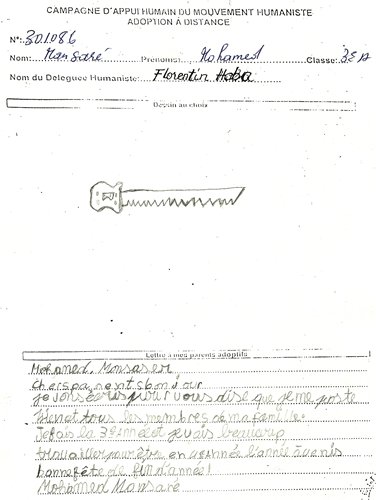 CAMPAGNE D'APPUI HUMAIN DU MOUVEMENT HUMANISTE
ADOPTION À DISTANCE
N°: 301086
Nom: Mansaré Prénoms: Mohamed Classe: 3È A
Nom du Delegues Humaniste: Florentin Haba
Dessin au choix
Lettre à mes parents adoptifs
Mohamed. Monsaser
chers pa nents bon jour
je vous écris pour vous dise que je me poste
bienet tous les membres de ma famille.
Je fais la 3è année et je vais beaucoup
travailler pour être en année l'année à venir
bonne fête de fin d'année!
Mohamed Mansaré